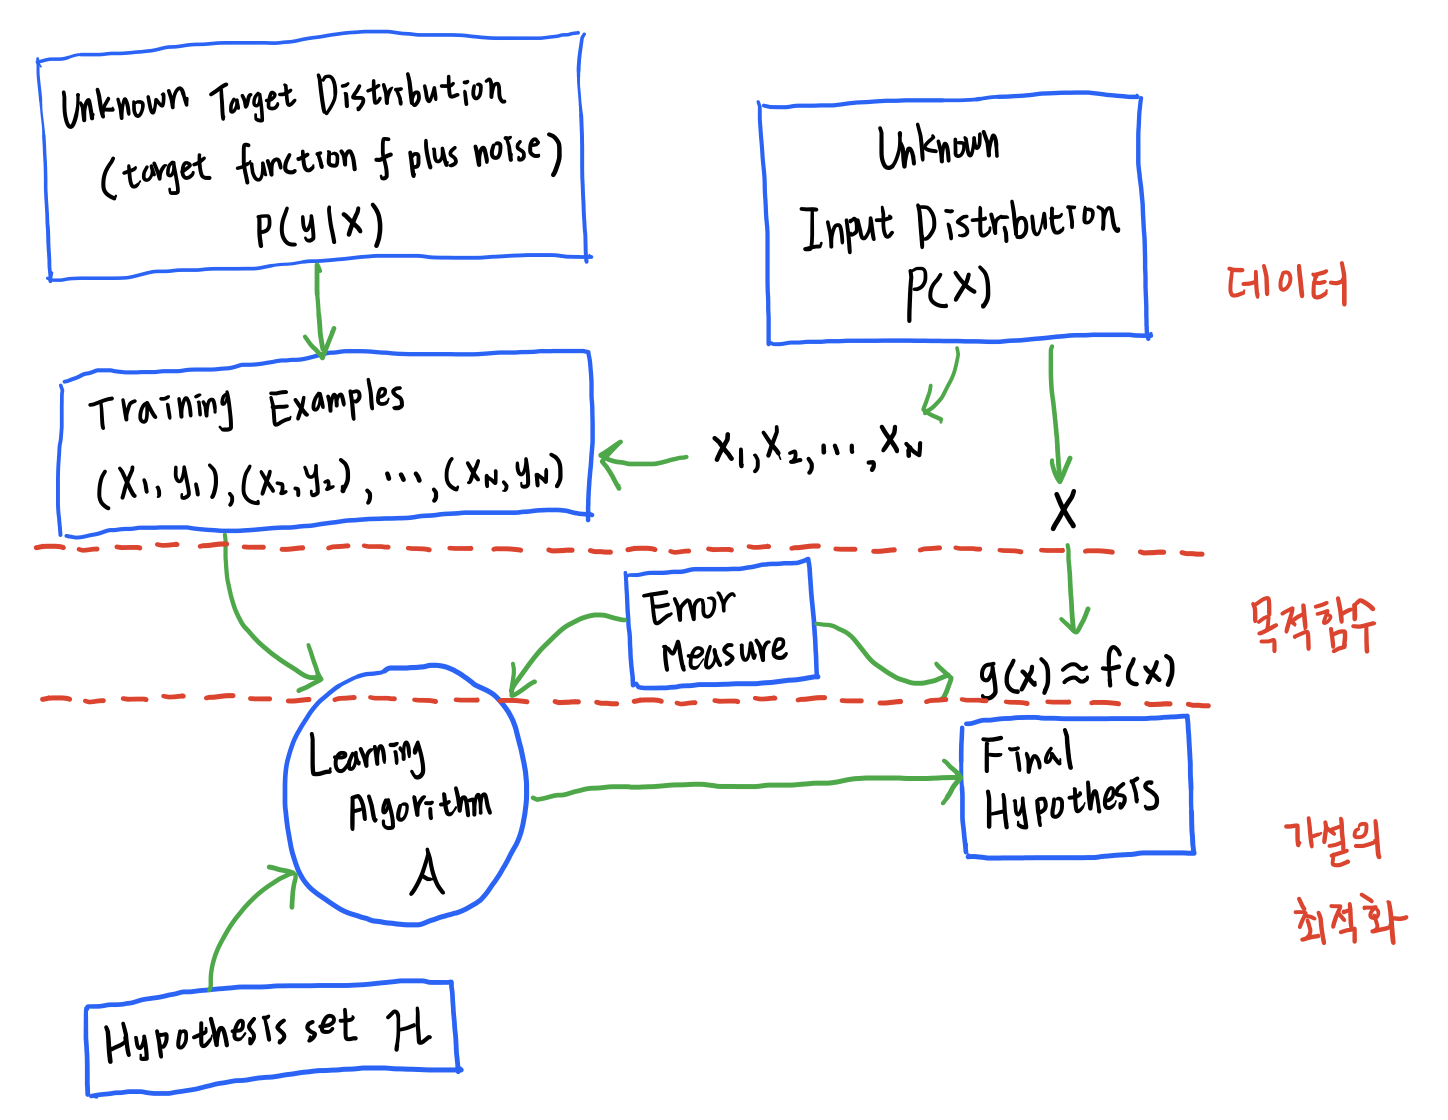 Unknown Target Distribution
(target function f plus noise)
P(y|x)
Unknown
Input Distribution
P(x)
데이터
Training Examples
(x₁, y₁), (x₂, y₂), ..., (x_N, y_N)
x₁, x₂, ..., x_N
x
Error
Measure
g(x) ≈ f(x)
목적함수
Learning
Algorithm
A
Final
Hypothesis
가설의
최적화
Hypothesis set H